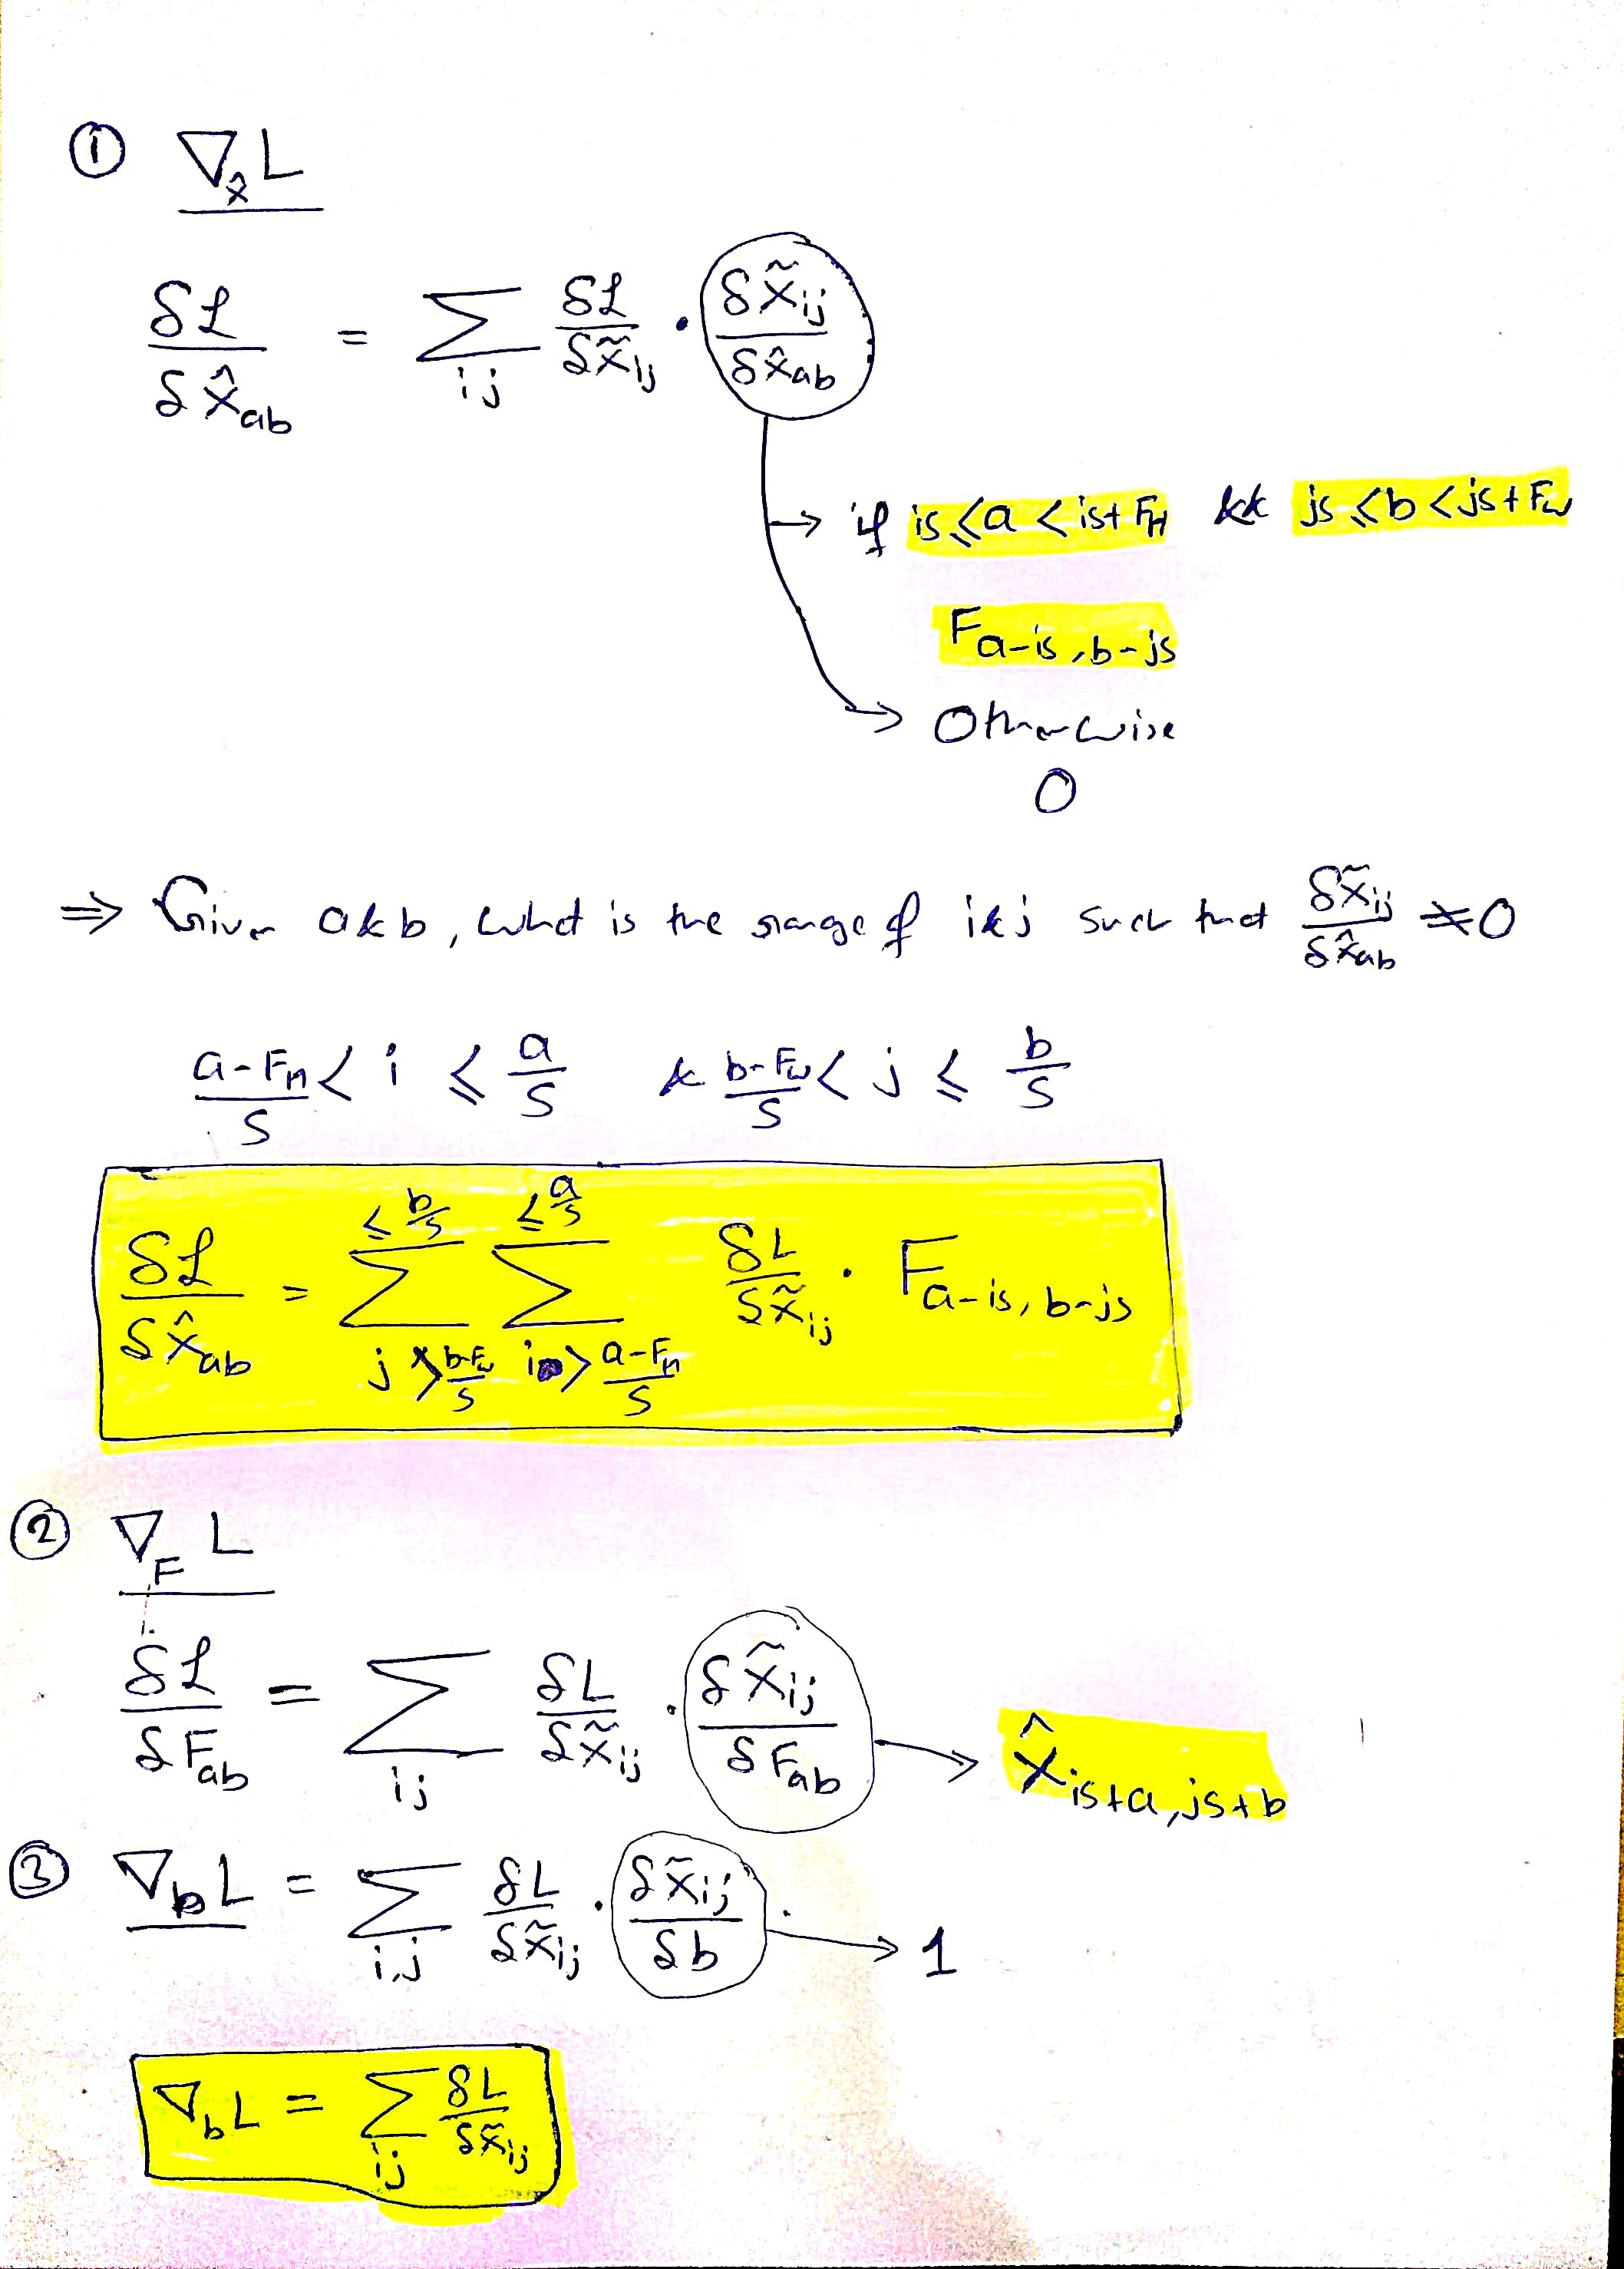 ① ∇_x̂ L
δℒ/δx̂_ab = Σ_ij δℒ/δx̃_ij · δx̃_ij/δx̂_ab
→ if is ≤ a < is+F_H && js ≤ b < js+F_W
F_a-is, b-js
→ Otherwise
0
⇒ Given a & b, what is the range of i & j such that δx̃_ij/δx̂_ab ≠ 0
(a-F_H)/S < i ≤ a/S & (b-F_W)/S < j ≤ b/S
δℒ/δx̂_ab = Σ_{j > (b-F_W)/S}^{≤ b/S} Σ_{i > (a-F_H)/S}^{≤ a/S} δL/δx̃_ij · F_a-is, b-js
② ∇_F L
δℒ/δF_ab = Σ_ij δL/δx̃_ij · δx̃_ij/δF_ab → x̂_is+a, js+b
③ ∇_b L = Σ_i,j δL/δx̃_ij · δx̃_ij/δb → 1
∇_b L = Σ_ij δL/δx̃_ij